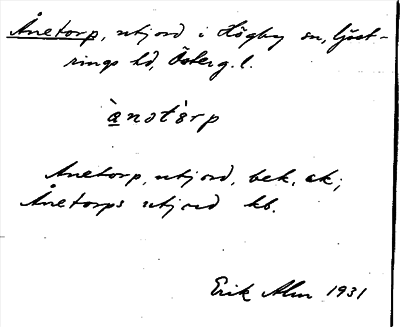 Ånetorp, utjord i Högby sn, Göst-
rings hd, Österg. l.
ànətòrp
Anetorp, utjord, bek. ak;
Ånetorps utjord kb.
Erik Alm 1931